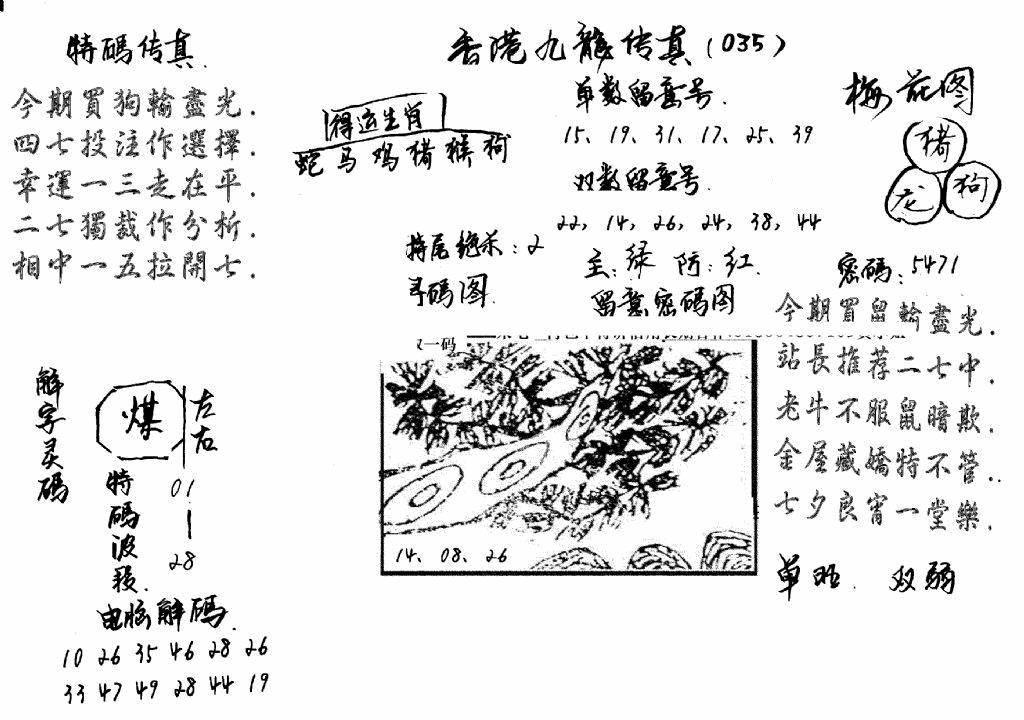 香港九龍传真(035)
特碼传真.
今期買狗輸盡光.
四七投注作選擇.
幸運一三走在平.
二七獨裁作分析.
相中一五拉開七.
得运生肖
蛇马鸡猪猴狗
单数留意号.
15、19、31、17、25、39
双数留意号.
22,14,26,24,38,44
特尾绝杀:2
主:绿 防:红.
寻码图.
留意密码图
梅花图
猪
龙
狗
密码:5471
今期買留輸盡光.
站長推荐二七中.
老牛不服鼠暗欺.
金屋藏嬌特不管..
七夕良宵一堂樂.
单旺 双弱
一码
14、08、26
解字灵碼
煤
左右
特碼波段.
01
28
电脑解碼.
10 26 35 46 28 26
33 47 49 28 44 19